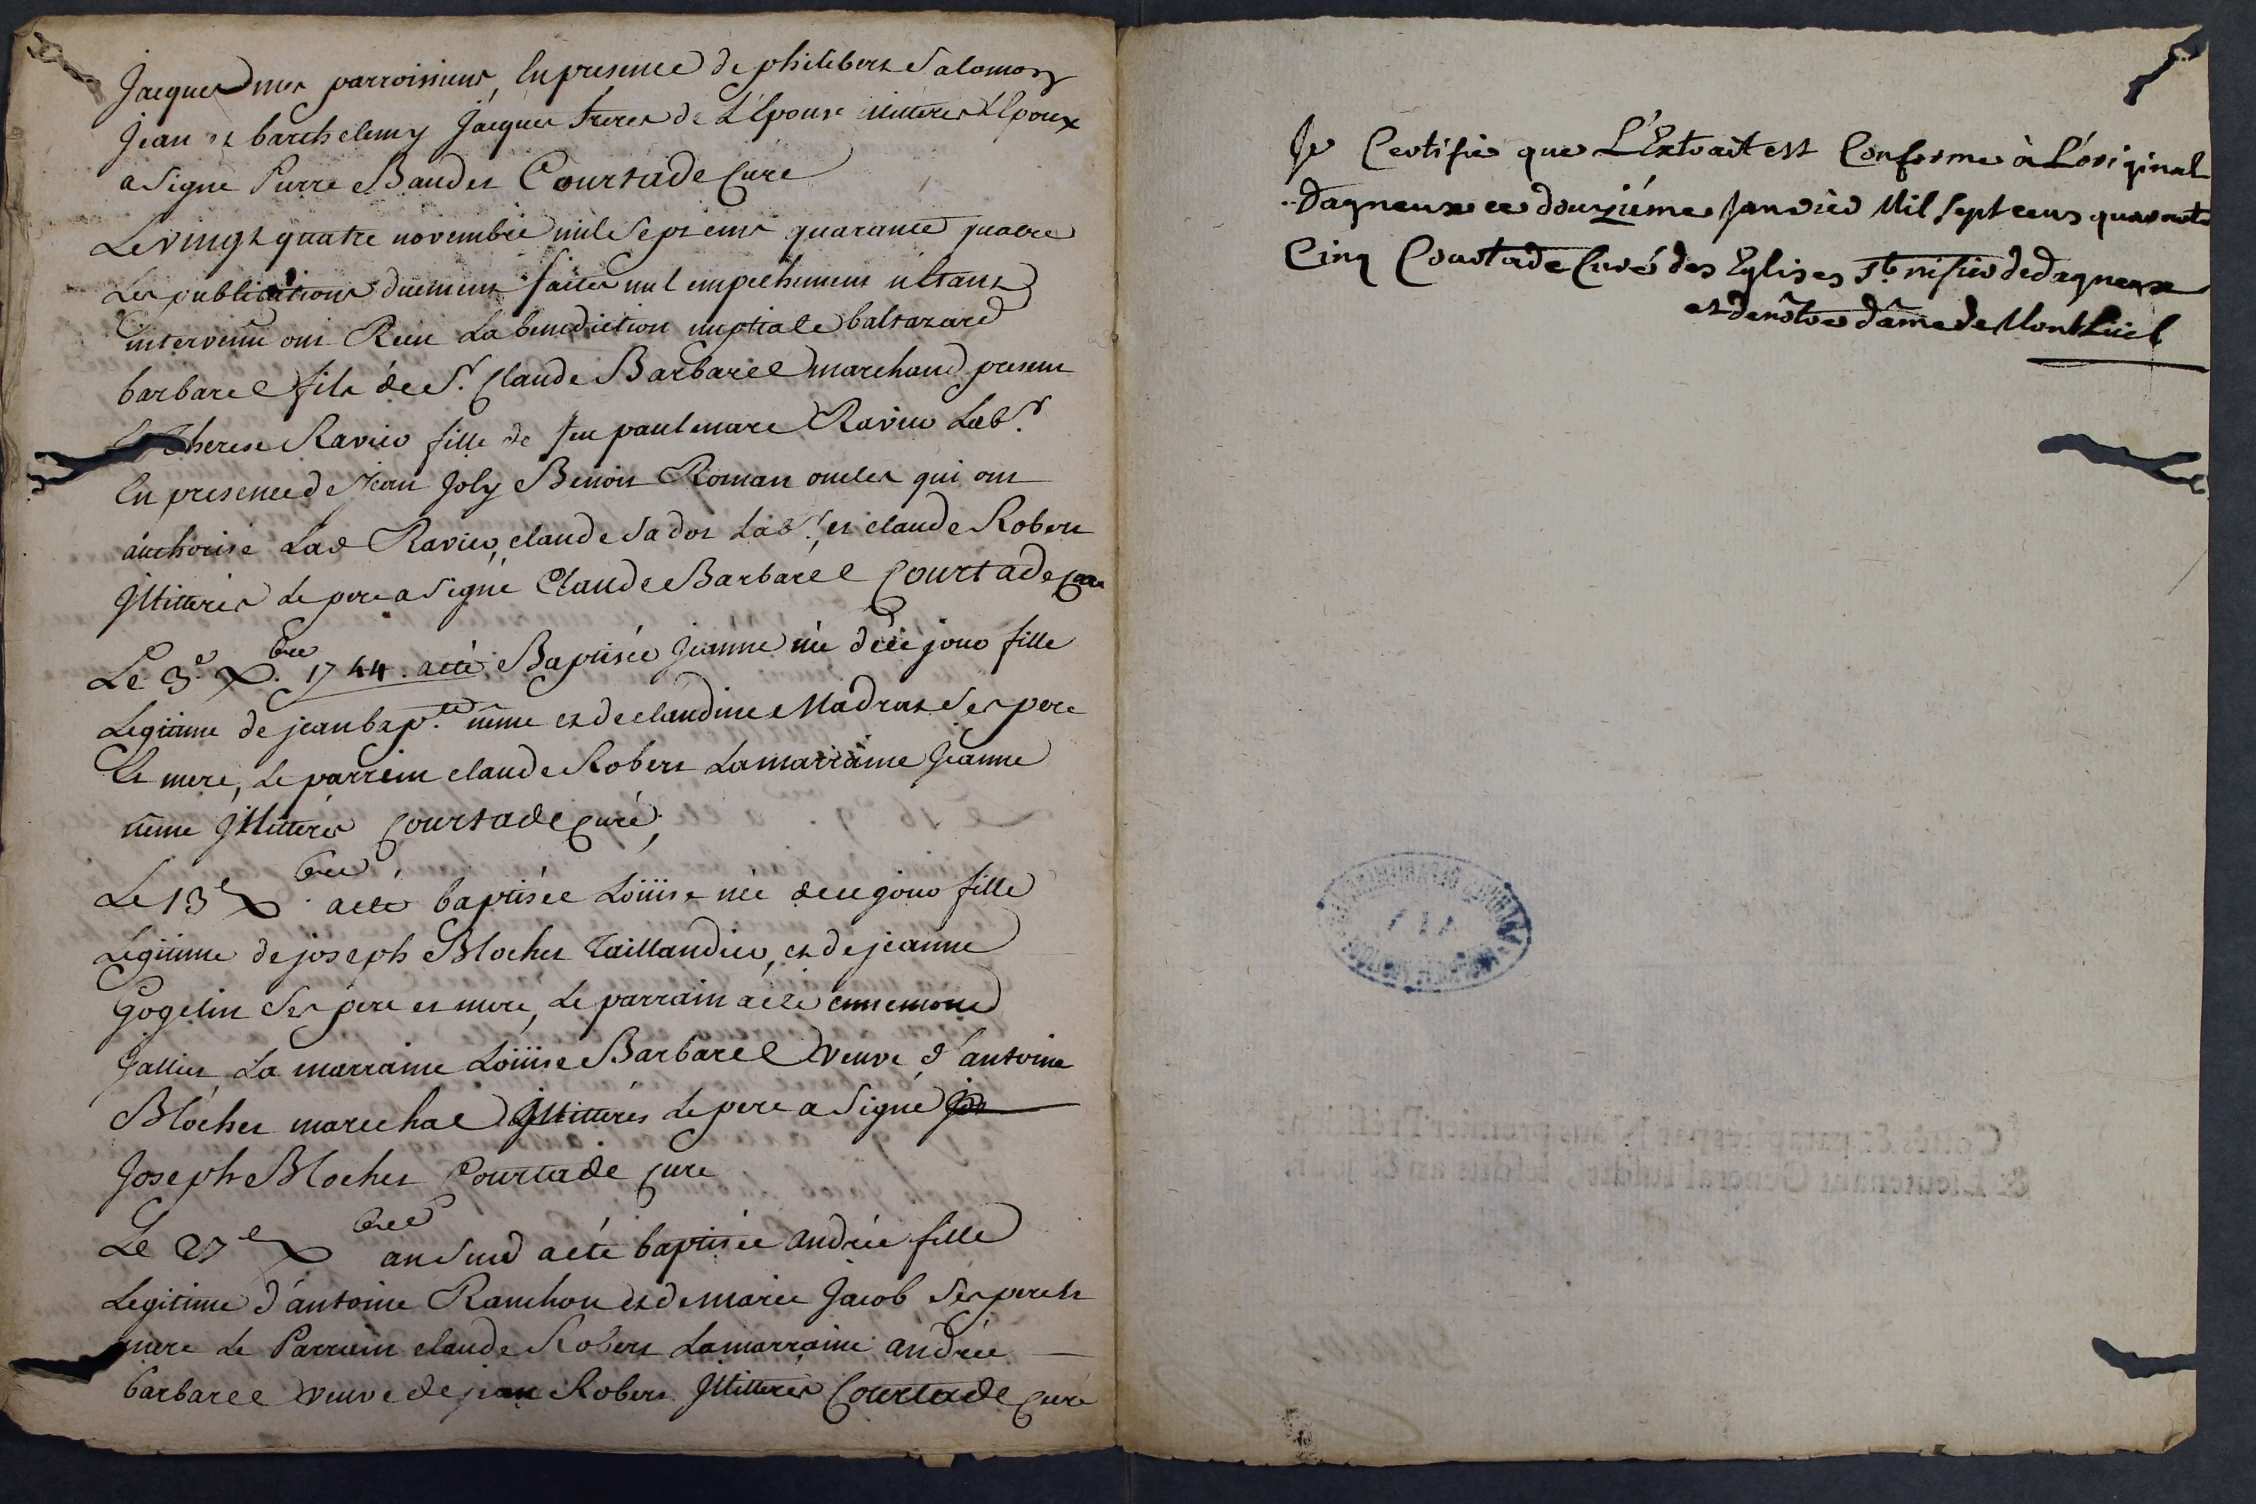 Jacques mes parroissiens, En presence de philibert Salomon
Jean et barthelemy Jacques freres de L'Epouse illiterés L'Epoux
a signé Pierre Baudet Courtade Curé
Le vingt quatre novembre mil sept cent quarante quatre
Les publications düement faites nul empechement n'étant
intervenu ont Recu La benediction nuptiale baltazard
barbarel fils de Sr. Claude Barbarel marchand present
Et Therese Ravier fille de feu paul marc Ravier Labr.
En presence de Jean Joly Benoit Roman oncles qui ont
authorisé Lad Ravier, claude Sadot Labr. et claude Robert
Jllitterés Le pere a signé Claude Barbarel Courtade Curé
Le 3e Xbre 1744 a eté Baptisée Jeanne née de ce jour fille
Legitime de jean bapte. nême et de claudine Madras Ses pere
Et mere, Le parrein claude Robert La marraine Jeanne
nême Jllitterés Courtade Curé;
Le 13e Xbre a eté baptisée Loüise née de ce jour fille
Legitime de joseph Blochet Taillandier, et de jeanne
Gogelin Ses pere et mere, Le parrain a eté ennemond
Gallier La marraine Loüise Barbarel veuve d'antoine
Blochet marechal Jllitterés Le pere a signé
Joseph Blochet Courtade Curé
Le 27e Xbre an Sud a eté baptisée andrée fille
Legitime d'antoine Ranchon et de marie Jacob Ses pere et
mere Le Parrein claude Robert La marraine andrée
barbarel veuve de jean Robert Jllitterés Courtade Curé
Je Certifie que L'Extrait est Conforme à L'original
Dagneux ce douziéme Janvier Mil Sept cens quarente
Cinq Courtade Curé des Eglises St. nisier de dagneux
et de nôtre dame de Montluel
Cottés & paraphés par Nous premier Président
& Lieutenant General susdit, lesdits an & jour.